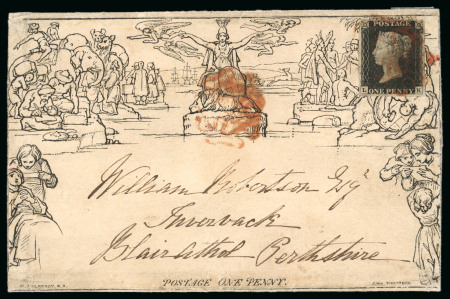 POSTAGE
ONE PENNY
William Robertson Esqr
Invervack
Blair Athol Perthshire
POSTAGE ONE PENNY.